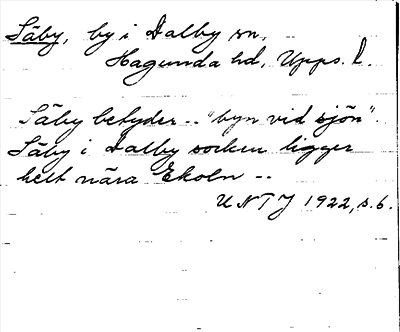 Säby, by i Dalby sn.
Hagunda hd, Upps. l.
Säby betyder -- "byn vid sjön".
Säby i Dalby socken ligger
helt nära Ekoln --
UNTJ 1922, s. 6.